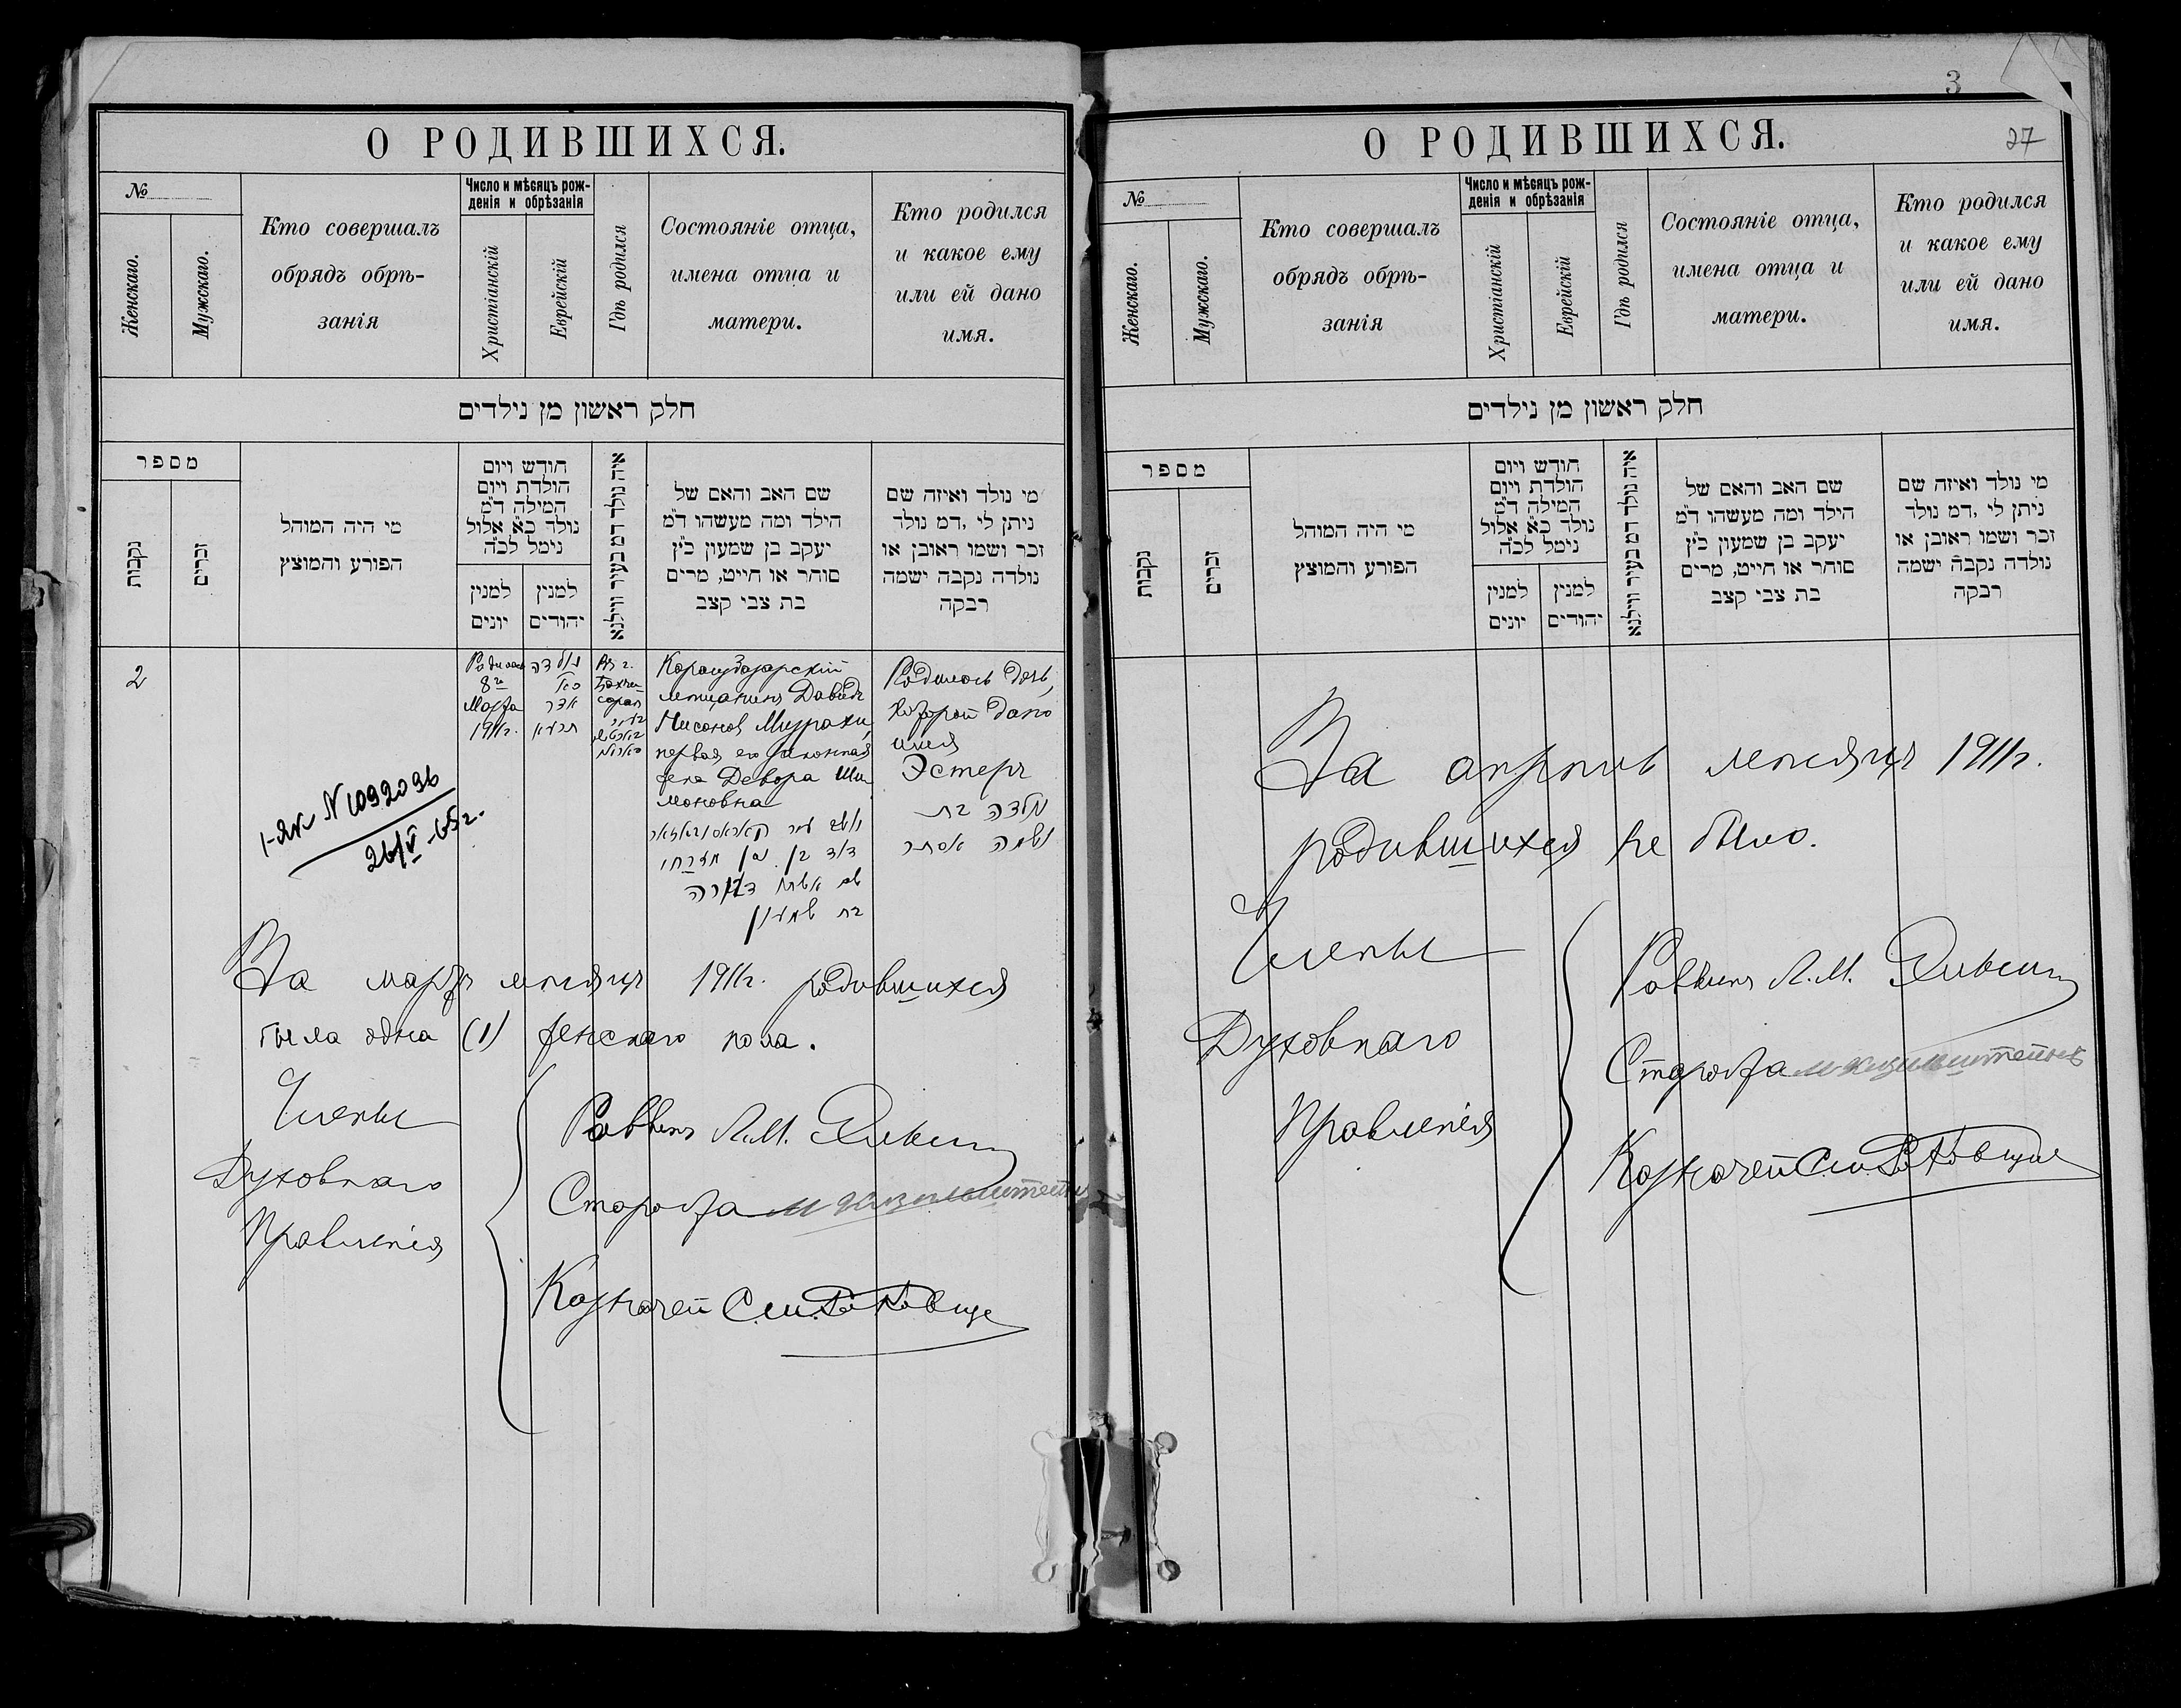 О РОДИВШИХСЯ.
№
Женскаго.
Мужскаго.
Кто совершалъ
обрядъ обрѣ-
занія
Число и мѣсяцъ рож-
денія и обрѣзанія
Христіанскій
Еврейскій
Гдѣ родился
Состояніе отца,
имена отца и
матери.
Кто родился
и какое ему
или ей дано
имя.
חלק ראשון מן נילדים
מספר
נקבות
זכרים
מי היה המוהל
הפורע והמוצץ
חודש ויום
הולדת ויום
המילה ד"מ
נולד כ"א אלול
נימל לכ"ה
למנין
יונים
למנין
יהודים
איה נולד דמ בעיר ווילנא
שם האב והאם של
הילד ומה מעשהו ד"מ
יעקב בן שמעון כ"ץ
סוחר או חייט, מרים
בת צבי קצב
מי נולד ואיזה שם
ניתן לי, דמ נולד
זכר ושמו ראובן או
נולדה נקבה ישמה
רבקה
2
Родилась
8го
Марта
1911г.
נולדה
כ"א
אדר
תרע"א
Въ г.
Бахчи-
сараѣ
Карасубазарскій
мѣщанинъ Давидъ
Нисоновъ Мизрахи,
первая его законная
жена Девора Ши-
моновна
דוד בן נסן מזרחי
שם אשתו דבורה
בת שמעון
Родилась дочь,
которой дано
имя
Эстеръ
נולדה בת
ושמה אסתר
I-ЯК N 1092096
26/V-65г.
За мартъ мѣсяцъ 1911г. родившихся
была одна (1) женскаго пола.
Члены
Духовнаго
Правленія
Раввинъ Л.М.
Староста
Казначей
3
О РОДИВШИХСЯ.
27
№
Женскаго.
Мужскаго.
Кто совершалъ
обрядъ обрѣ-
занія
Число и мѣсяцъ рож-
денія и обрѣзанія
Христіанскій
Еврейскій
Гдѣ родился
Состояніе отца,
имена отца и
матери.
Кто родился
и какое ему
или ей дано
имя.
חלק ראשון מן נילדים
מספר
נקבות
זכרים
מי היה המוהל
הפורע והמוצץ
חודש ויום
הולדת ויום
המילה ד"מ
נולד כ"א אלול
נימל לכ"ה
למנין
יונים
למנין
יהודים
איה נולד דמ בעיר ווילנא
שם האב והאם של
הילד ומה מעשהו ד"מ
יעקב בן שמעון כ"ץ
סוחר או חייט, מרים
בת צבי קצב
מי נולד ואיזה שם
ניתן לי, דמ נולד
זכר ושמו ראובן או
נולדה נקבה ישמה
רבקה
За апрѣль мѣсяцъ 1911г.
родившихся не было.
Члены
Духовнаго
Правленія
Раввинъ Л.М.
Староста
Казначей